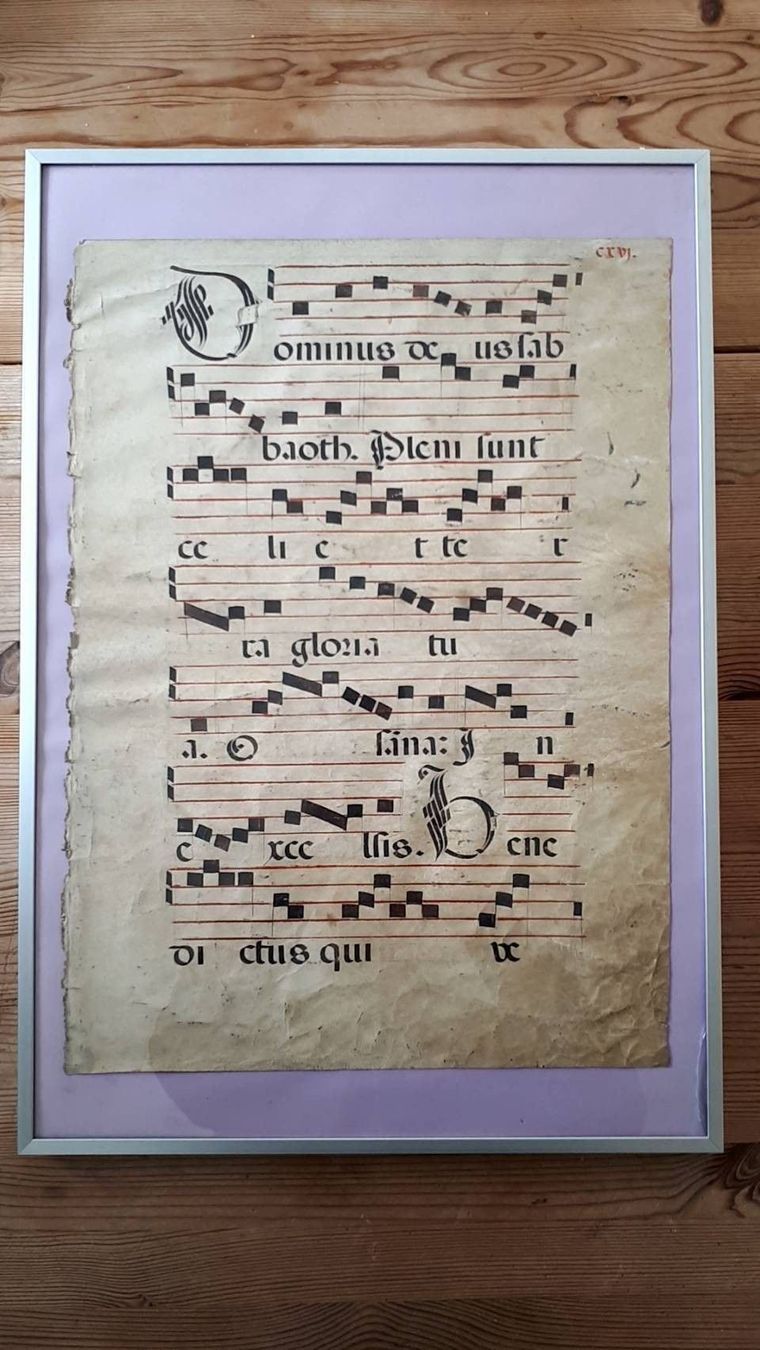 cxvj.
Dominus de us sab
baoth. Pleni sunt
ce li e t te r
ra gloria tu
a. O sãna: I n
e xce lsis. Bene
di ctus qui ve